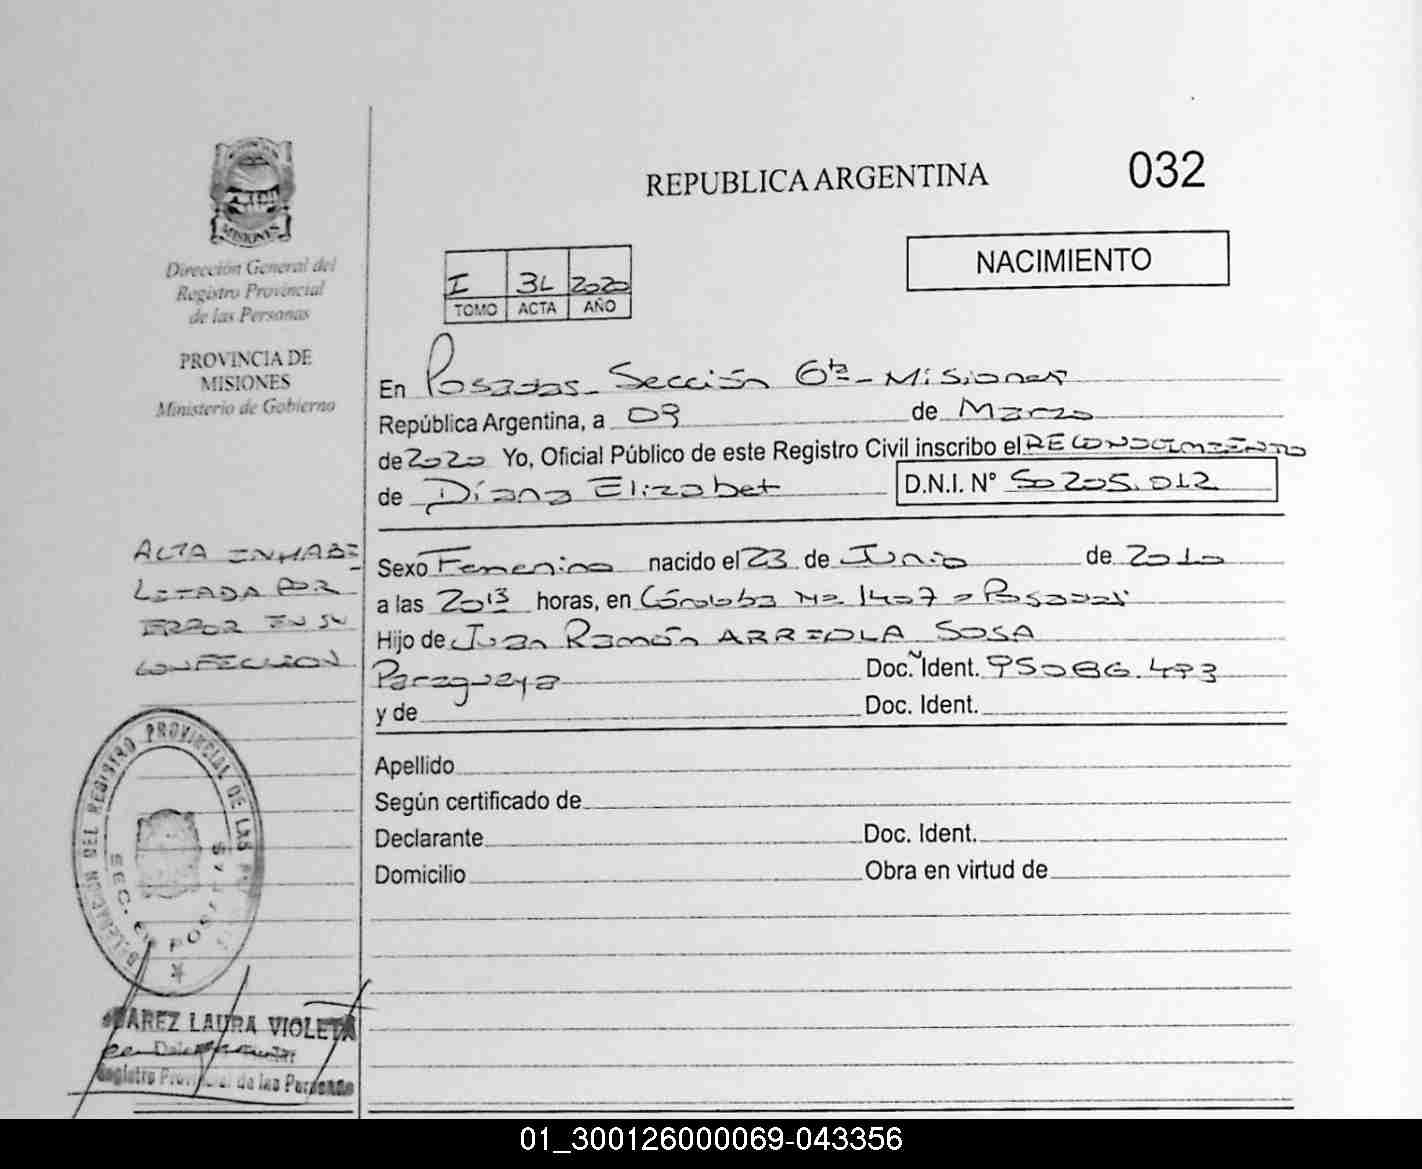 REPUBLICA ARGENTINA
032
NACIMIENTO
MISIONES
Dirección General del
Registro Provincial
de las Personas
PROVINCIA DE
MISIONES
Ministerio de Gobierno
I 32 2020
TOMO ACTA AÑO
En Posadas - Sección 6ta - Misiones
República Argentina, a 09 de Marzo
de 2020 Yo, Oficial Público de este Registro Civil inscribo el RECONOCIMIENTO
de Diana Elizabet D.N.I. N° 50205.012
Sexo Femenino nacido el 23 de Junio de 2010
a las 20 13 horas, en Córdoba Nº 1407 - Posadas
Hijo de Juan Ramón ARREOLA SOSA
Paraguaya Doc. Ident. 95086.493
y de Doc. Ident.
Apellido
Según certificado de
Declarante Doc. Ident.
Domicilio Obra en virtud de
ACTA INHABI
LITADA POR
ERROR EN SU
CONFECCION
DEL REGISTRO PROVINCIAL DE LAS
SEC. POSADAS
LAURA VIOLETA
Registro Provincial de las Personas
01_300126000069-043356